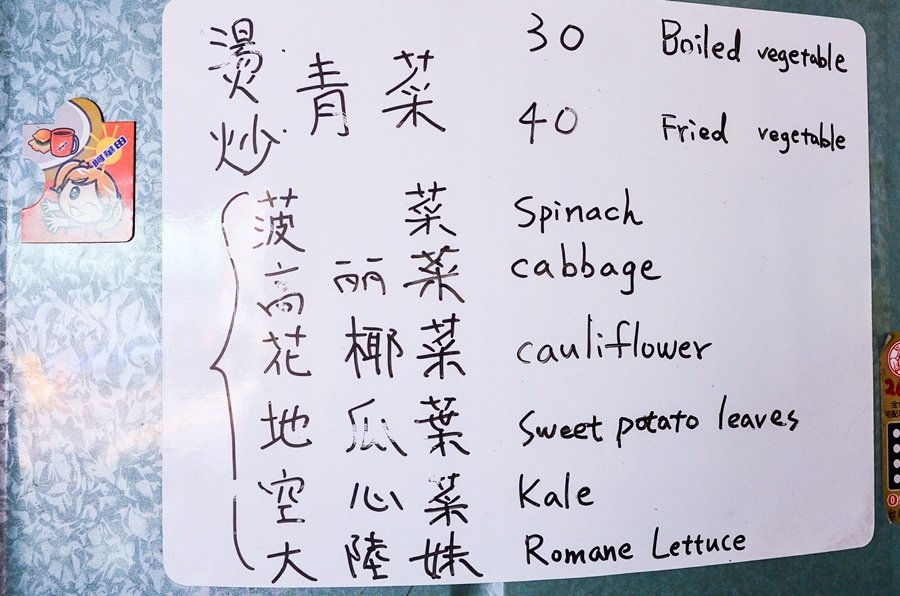 燙 青菜 30 Boiled vegetable
炒 40 Fried vegetable
菠菜 Spinach
高丽菜 cabbage
花椰菜 cauliflower
地瓜葉 Sweet potato leaves
空心菜 Kale
大陸妹 Romane Lettuce